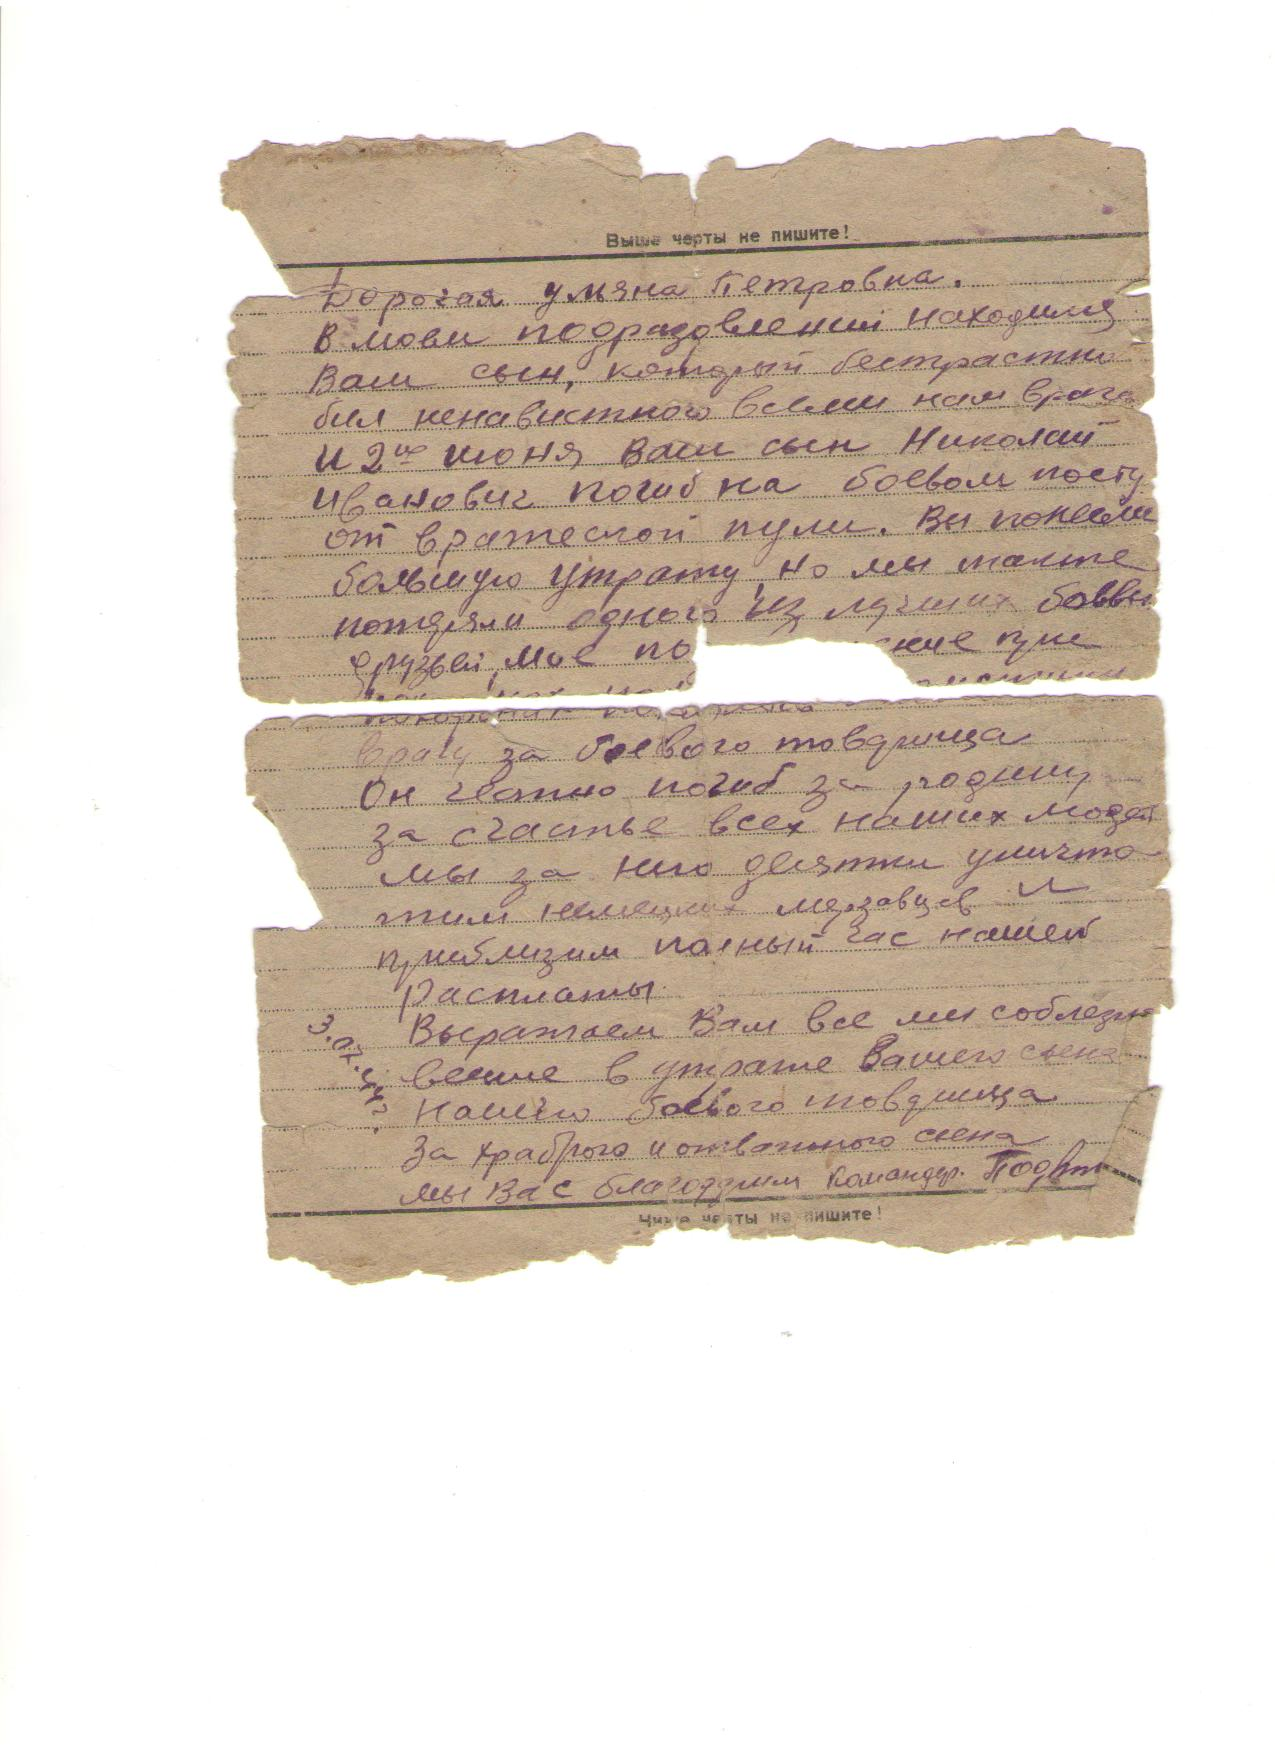 Выше черты не пишите!
Дорогая ульяна Петровна.
В моем подразделении находился
Ваш сын, который бестрастно
бил ненавистного всеми нам врага
И 2го июня Ваш сын Николай
Иванович погиб на боевом посту
от вражеской пули. Вы понесли
большую утрату но мы также
потеряли одного из лучших боевы
друзьей, мое по ские при
врагу за боевого товарища
Он честно погиб за родину
за счастье всех наших людей
мы за него десятки уничто
жим немецких мерзавцев и
приблизим полный час нашей
Расплаты.
Выражаем Вам все мы соблезно
вение в утрате Вашего сына
Нашего боевого товарища
За храброго и отважного сына
мы Вас благодарим Командир.
3.07.44г.
Ниже черты не пишите!